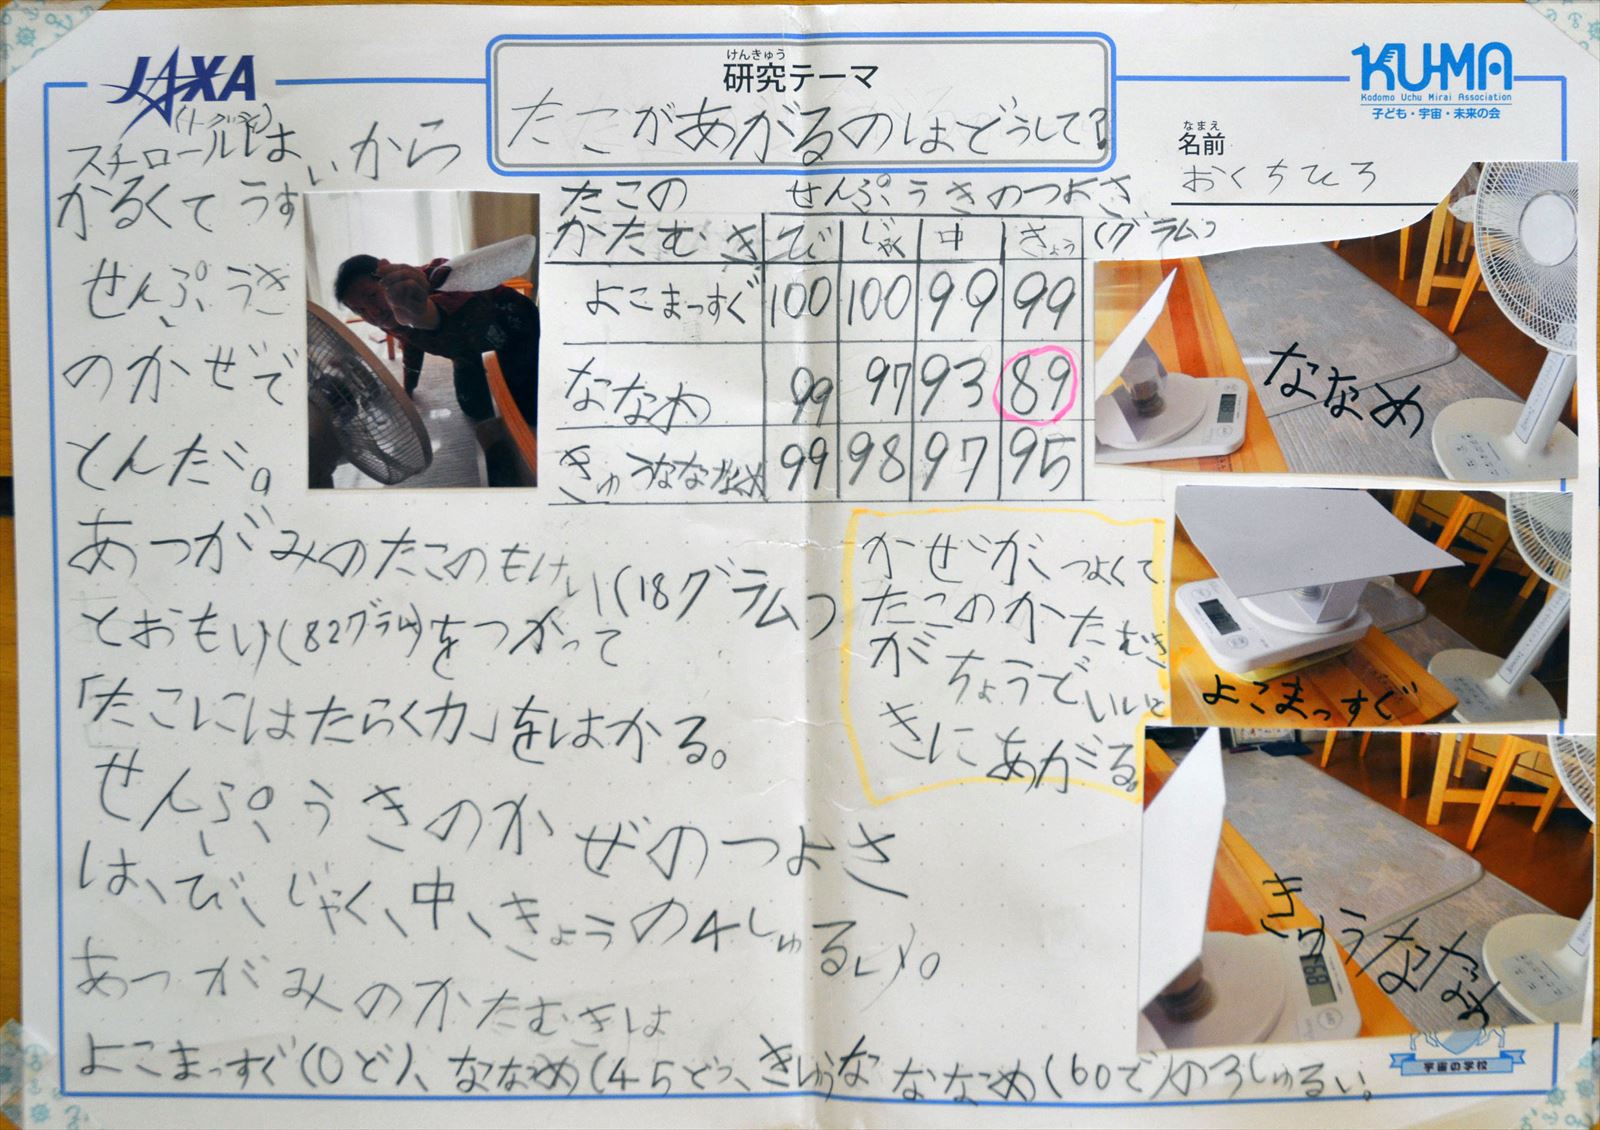 JAXA
けんきゅう
研究テーマ
たこがあがるのはどうして?
KU-MA
Kodomo Uchu Mirai Association
子ども・宇宙・未来の会
なまえ
名前
おくちひろ
スチロールは
かるくてうすいから
せんぷうき
のかぜで
とんだ。
たこの せんぷうきのつよさ
かたむき び じゃく 中 きょう (グラム)
よこまっすぐ 100 100 99 99
ななめ 99 97 93 89
きゅうななめ 99 98 97 95
あつがみのたこのもけい(18グラム)
とおもり(82グラム)をつかって
「たこにはたらく力」をはかる。
せんぷうきのかぜのつよさ
は、び、じゃく、中、きょうの4しゅるい。
あつがみのかたむきは
よこまっすぐ(0ど)、ななめ(45ど)、きゅうなななめ(60ど)の3しゅるい。
かぜがつよくて
たこのかたむき
がちょうどいいと
きにあがる。
ななめ
よこまっすぐ
きゅうななめ
宇宙の学校